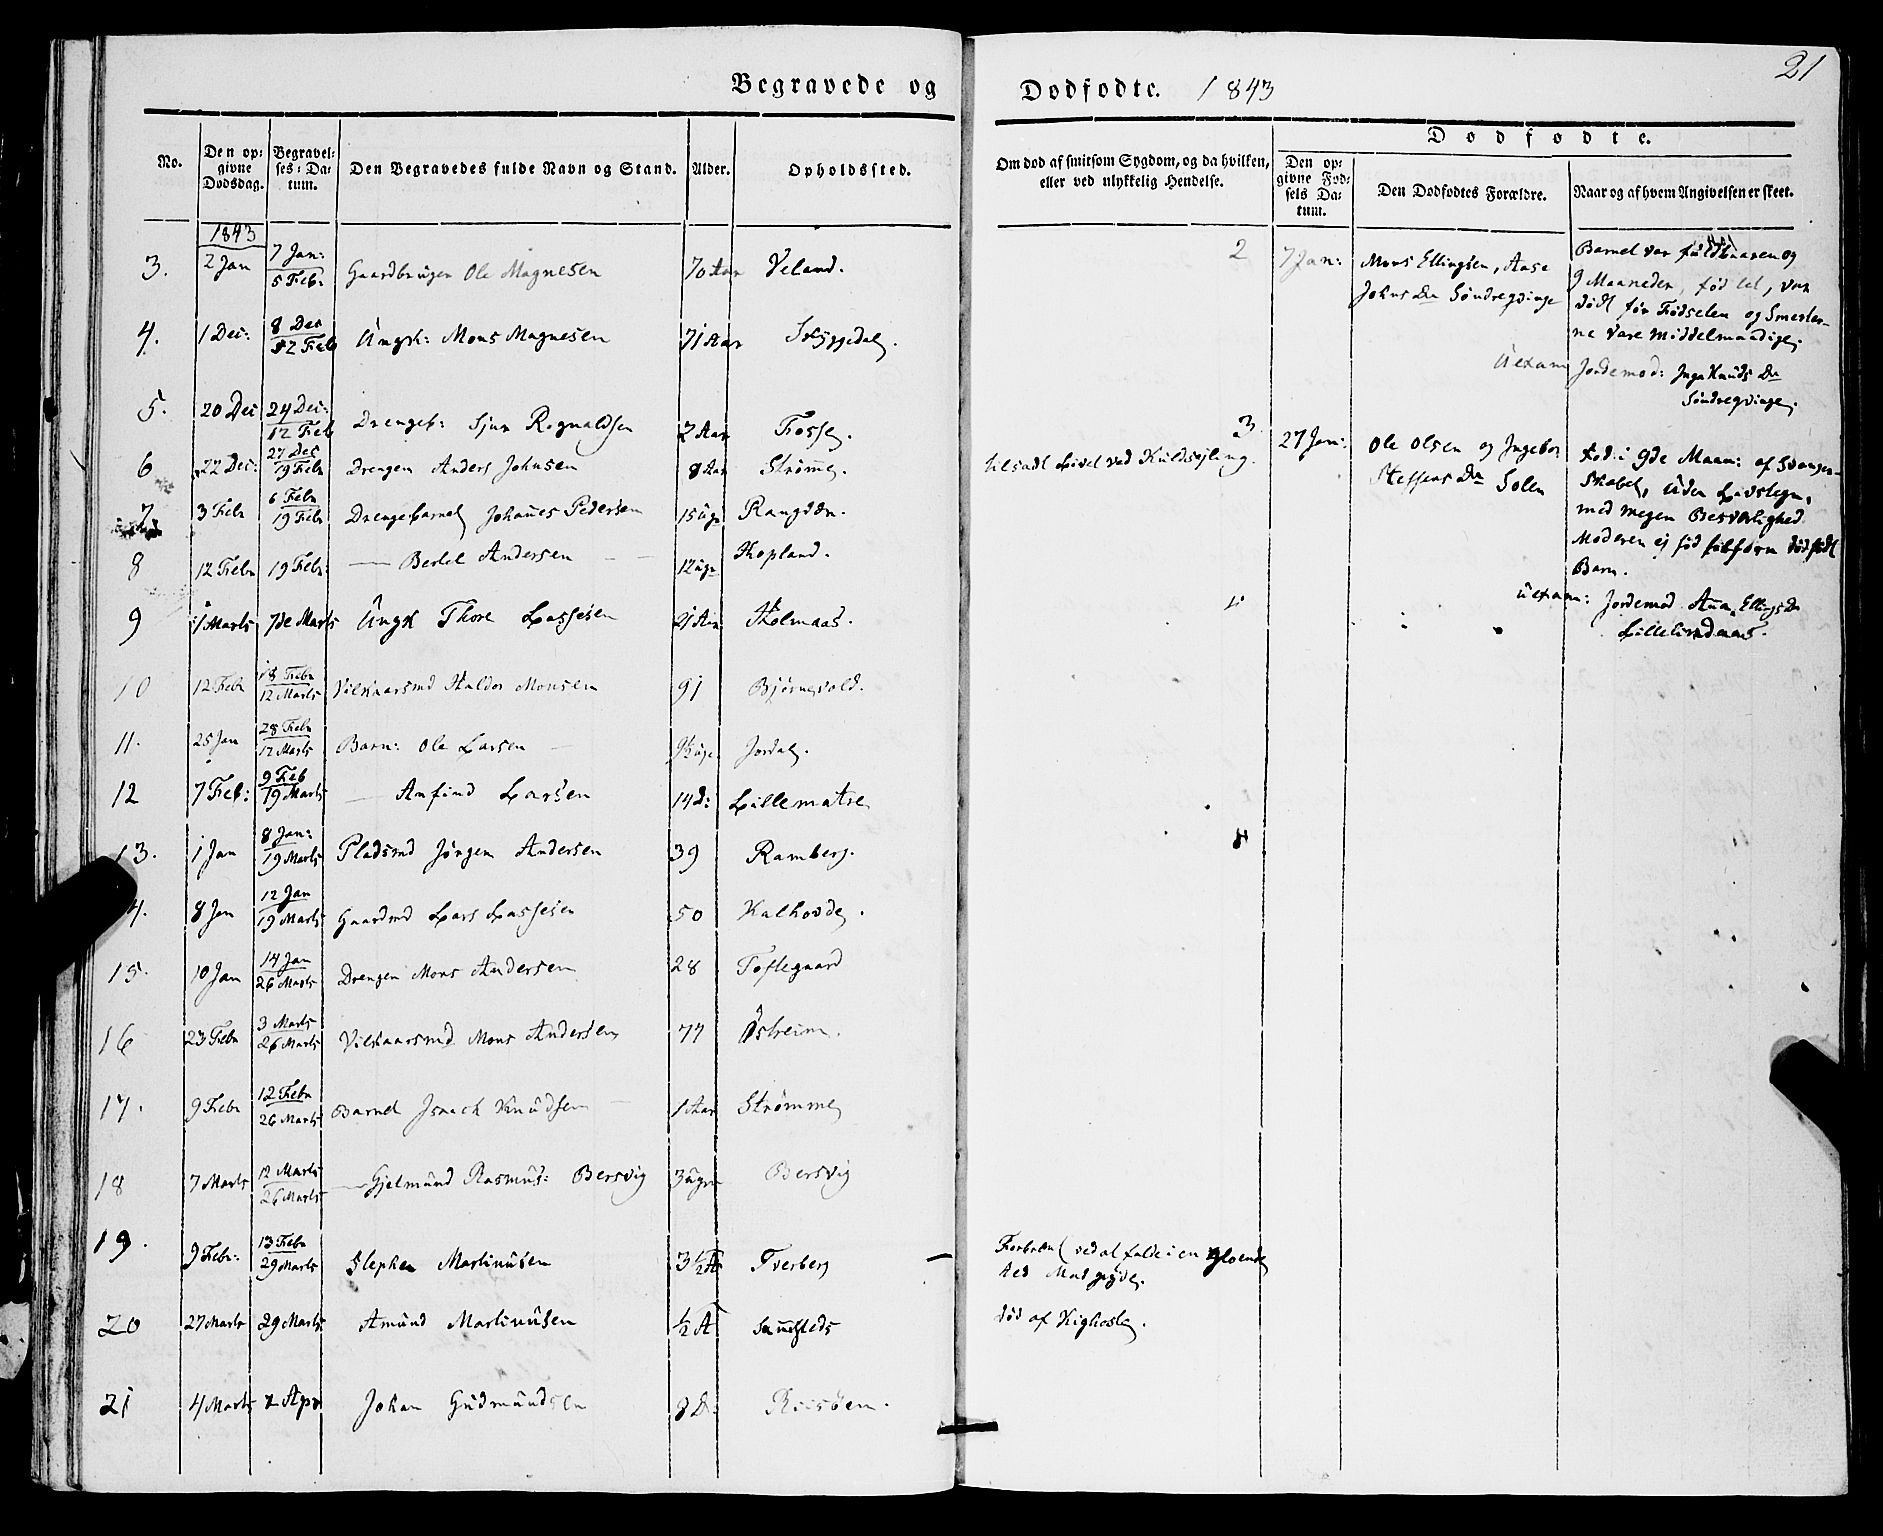 21
Begravede og Dodfodte. 1843
No.
Den opgivne Dodsdag.
Begravelses-Datum.
Den Begravedes fulde Navn og Stand.
Alder.
Opholdssted.
Om dod af smitsom Sygdom, og da hvilken, eller ved ulykkelig Hendelse.
Dodfodte.
Den opgivne Fodsels Datum.
Den Dodfodtes Forældre.
Naar og af hvem Angivelsen er skeet.
1843
3. 2 Jan 7 Jan: 5 Feb: Gaardbruger Ole Magnesen 70 Aar Veland.
4. 1 Dec: 8 Dec 12 Feb Ungk: Mons Magnesen 71 Aar
5. 20 Dec 24 Dec: 12 Feb Drengeb: Sjur Rognaldsen 2 Aar Fosse.
6 22 Dec: 27 Dec 19 Febr Drengen Anders Johnsen 8 Aar Strømme. tilsadt Livet ved Kuldsejling.
7 3 Febr 6 Febr 19 Febr Drengebarnet Johannes Pedersen 15 Uger
8 12 Febr 19 Febr: — Bertel Andersen 12 Uger Hopland.
9 1 Marts 7de Marts Ungk Thore Lassesen 21 Aar Holmaas.
10 12 Febr 18 Febr 12 Marts Vilkaarsmd Haldor Monsen 91 Bjørnevold.
11. 25 Jan 28 Febr 12 Marts Barn: Ole Larsen 9½ Uge Jordal.
12 7 Feb: 9 Feb 19 Marts — Amfind Larsen 14 D: Lillematre
13. 1 Jan 8 Jan: 19 Marts Pladsmd Jørgen Andersen 39 Ramberg.
4. 8 Jan 12 Jan 19 Marts Gaardmd Lars Lassesen 50 Kalhovde.
15. 10 Jan 14 Jan 26 Marts Drengen Mons Andersen 28 Toftegaard
16 23 Febr 3 Marts 26 Marts Vilkaarsmd Mons Andersen 77 Østreim.
17. 9 Febr 12 Febr 26 Marts Barnet Isaack Knudsen 1 Aar Strømme
18 7 Marts 12 Marts 26 Marts — Gjelmund Rasmus: Bersvig 3 Uger Bersvig
19. 9 Febr: 13 Febr 29 Marts Stephen Martinusen 3½ A Tverberg Forbrændt ved at falde i en gloende
20 27 Marts 29 Marts Amund Martinusen ½ A Sammesteds død af Kighoste.
21 4 Marts 2 Apr Johan Gudmundsen 8 D:
2 7 Jan: Mons Ellingsen, Aase
Johns Dr Søndreqvinge
Barnet var fuldbaaren og
9 Maaneder, født, var
dødt før Fødselen og Smerter-
ne vare middelmaadige.
Uexam Jordemod: Inga Knuds Dr
Søndreqvinge.
3. 27 Jan: Ole Olsen og Ingebor
Steffens Dr Solem
Fød: i 9de Maan: af Svanger-
skabet, uden Livstegn,
med megen Besværlighed
Moderen ej fød tilforn dødfødt
Barn.
Uexam: Jordemod Anna Ellings Dr
Lillelindaas.